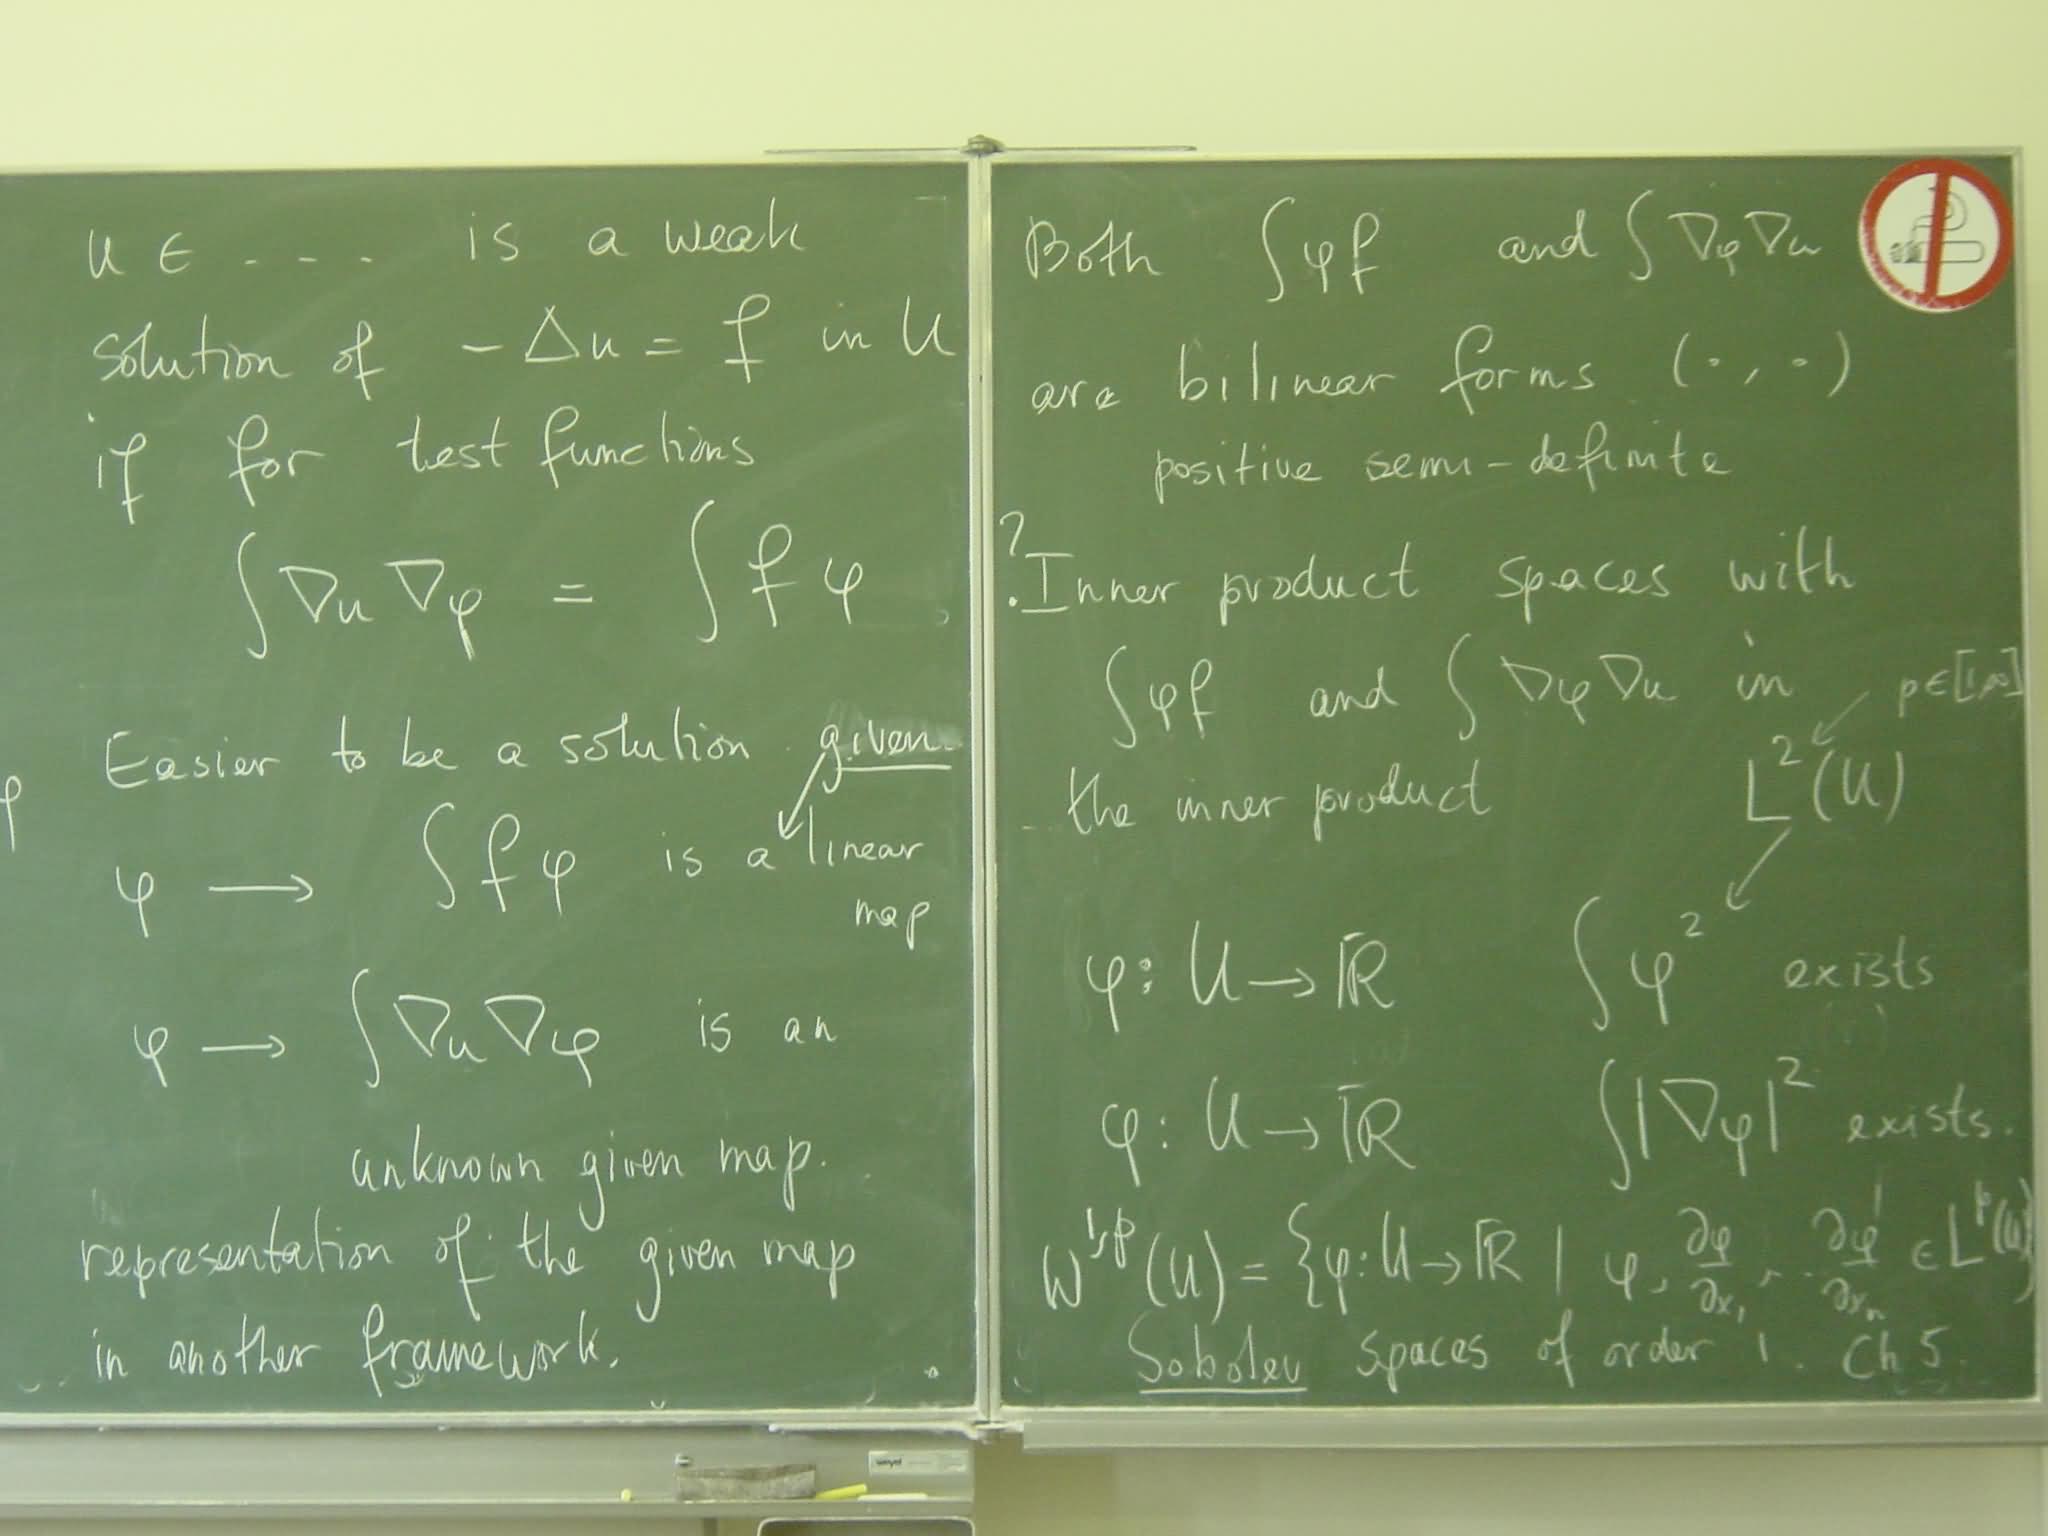 u ∈ - - - is a weak
solution of -Δu = f in U
if for test functions
∫∇u∇φ = ∫fφ
Easier to be a solution given
φ
φ → ∫fφ is a linear
map
φ → ∫∇u∇φ is an
unknown given map.
representation of the given map
in another framework.
Both ∫φf and ∫∇φ∇u
are bilinear forms (·,·)
positive semi-definite
? Inner product spaces with
∫φf and ∫∇φ∇u in
p∈[1,∞]
the inner product L²(U)
φ: U → ℝ ∫φ² exists
φ: U → ℝ ∫|∇φ|² exists.
W^{1,p}(U) = {φ: U → ℝ | φ, ∂φ/∂x₁, .. ∂φ/∂xₙ ∈ L^p(U)}
Sobolev spaces of order 1. Ch 5.
weyel